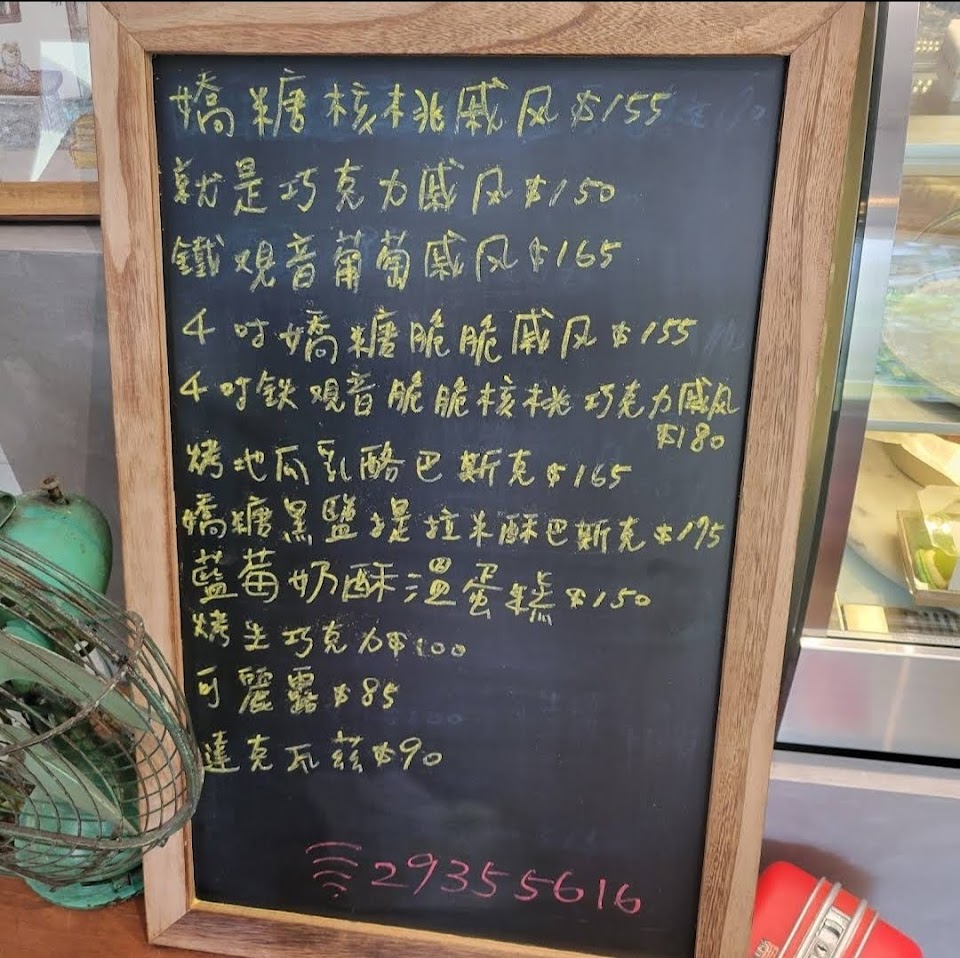 嬌糖核桃戚风$155
就是巧克力戚风$150
鐵观音葡萄戚风$165
4吋嬌糖脆脆戚风$155
4吋鉄观音脆脆核桃巧克力戚风
$180
烤地瓜乳酪巴斯克$165
嬌糖黑鹽提拉米酥巴斯克$175
藍莓奶酥溫蛋糕$150
烤生巧克力$100
可麗露$85
達克瓦茲$90
29355616